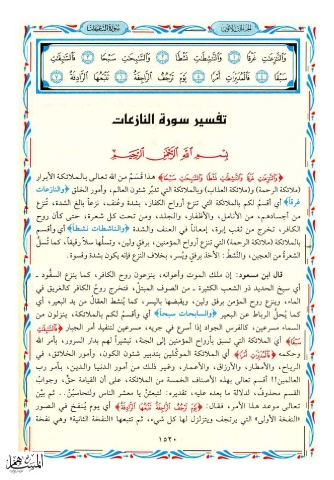 سورة النازعات
الجزء الثلاثون
وَالنَّازِعَاتِ غَرْقًا ۝١ وَالنَّاشِطَاتِ نَشْطًا ۝٢ وَالسَّابِحَاتِ سَبْحًا ۝٣ فَالسَّابِقَاتِ
سَبْقًا ۝٤ فَالْمُدَبِّرَاتِ أَمْرًا ۝٥ يَوْمَ تَرْجُفُ الرَّاجِفَةُ ۝٦ تَتْبَعُهَا الرَّادِفَةُ ۝٧
تفسير سورة النازعات
بسم الله الرحمن الرحيم
﴿وَالنَّازِعَاتِ غَرْقًا وَالنَّاشِطَاتِ نَشْطًا وَالسَّابِحَاتِ سَبْحًا﴾ هذا قَسَمٌ من الله تعالى بالملائكة الأبرار
(ملائكة الرحمة) و(ملائكة العذاب) وبالملائكة التي تدبِّر شئون العالم، وأمور الخلق ﴿والنازعات
غرقاً﴾ أي أقسم لكم بالملائكة التي تنزع أرواح الكفار، بشدة وعُنف، نزعاً بالغ الشدة، تُنزع
من أجسادهم، من الأنامل، والأظفار، والجلد، ومن تحت كل شعرة، حتى كأن روح
الكافر، تخرج من ثقب إبرة، إمعاناً في العنف والشدة ﴿والناشطات نشطاً﴾ أي وأقسم
بالملائكة (ملائكة الرحمة) التي تنزع أرواح المؤمنين، برفقٍ ولين، وتسلُّها سلّاً رقيقاً، كما تُسلُّ
الشعرة من العجين، والنَّشطُ: الأخذ برفق ويُسر، بخلاف النزع فإنه يكون بشدة وقسوة.
قال ابن مسعود: إن ملك الموت وأعوانه، ينزعون روح الكافر، كما ينزع السفُّود ـ
أي سيخ الحديد ذر الشعب الكثيرة ـ من الصوف المبتلّ، فتخرج روح الكافر كالغريق في
الماء، وينزع روح المؤمن برفق ولين، ويقبضها باليسر، كما يُنشط العقال من يد البعير، أي
كما يُحلُّ الرباط عن البعير ﴿والسابحات سبحاً﴾ أي وأقسم لكم بالملائكة، ينزلون من
السماء مسرعين، كالفرس الجواد إذا أسرع في جريه، مسرعين لتنفيذ أمر الجبار ﴿فَالسَّابِقَاتِ
سَبْقًا﴾ أي الملائكة التي تسبق بأرواح المؤمنين إلى الجنة، تبشيراً لهم بدار السرور، بأمر الله
وحكمه ﴿فَالْمُدَبِّرَاتِ أَمْرًا﴾ أي الملائكة الموكّلين بتدبير شئون الكون، وأمور الخلائق، في
الرياح، والأمطار، والأرزاق، والأعمار، وغير ذلك من أمور الدنيا والدين، بأمر رب
العالمين!! أقسم تعالى بهذه الأصناف الخمسة من الملائكة، على أن القيامة حقٌّ، وجوابُ
القسم محذوف، لدلالة ما بعده عليه، تقديره: لتبعثنَّ يا معشر الناس ولتحاسبُنَّ.. ثم بيَّن
تعالى موعد هذا الأمر، فقال: ﴿يَوْمَ تَرْجُفُ الرَّاجِفَةُ تَتْبَعُهَا الرَّادِفَةُ﴾ أي يوم يُنفخ في الصور
«النفخة الأولى» التي يرتجف ويتزلزل لها كل شيء، ثم تتبعها «النفخة الثانية» وهي نفخة
١٥٢٠